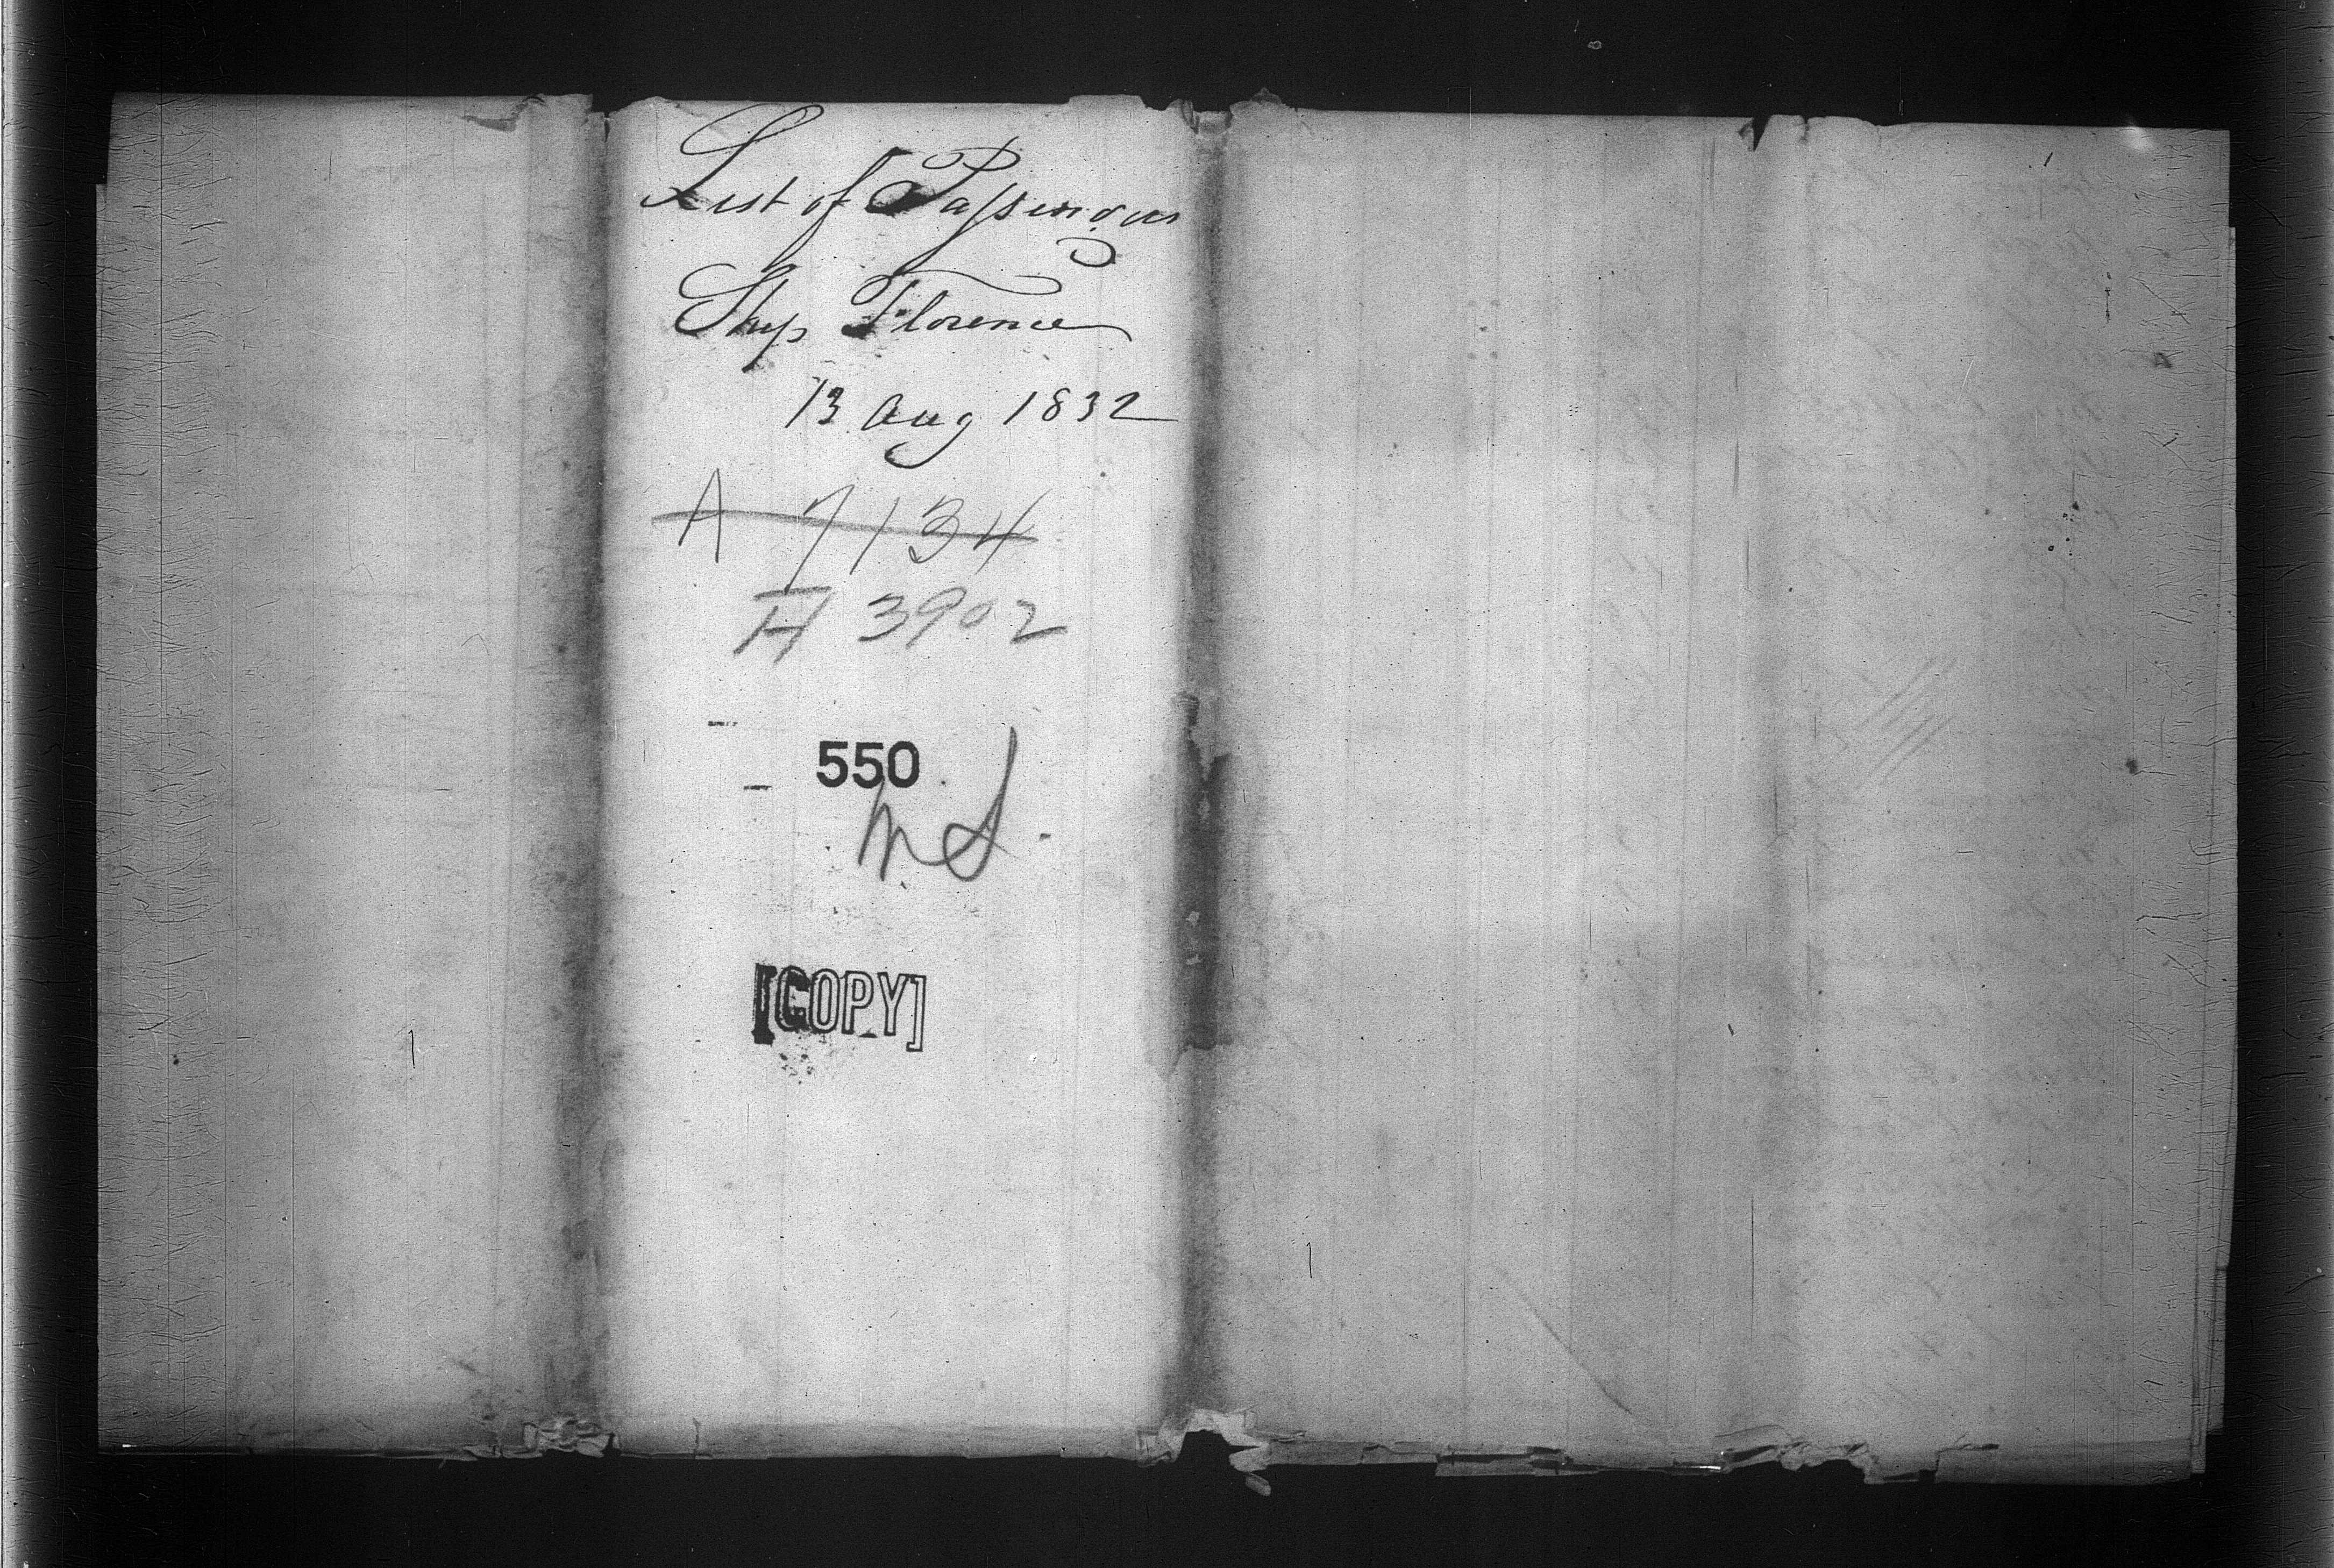 List of Passengers
Ship Florence
13 Aug 1832
A 7134
H 3902
550
[COPY]